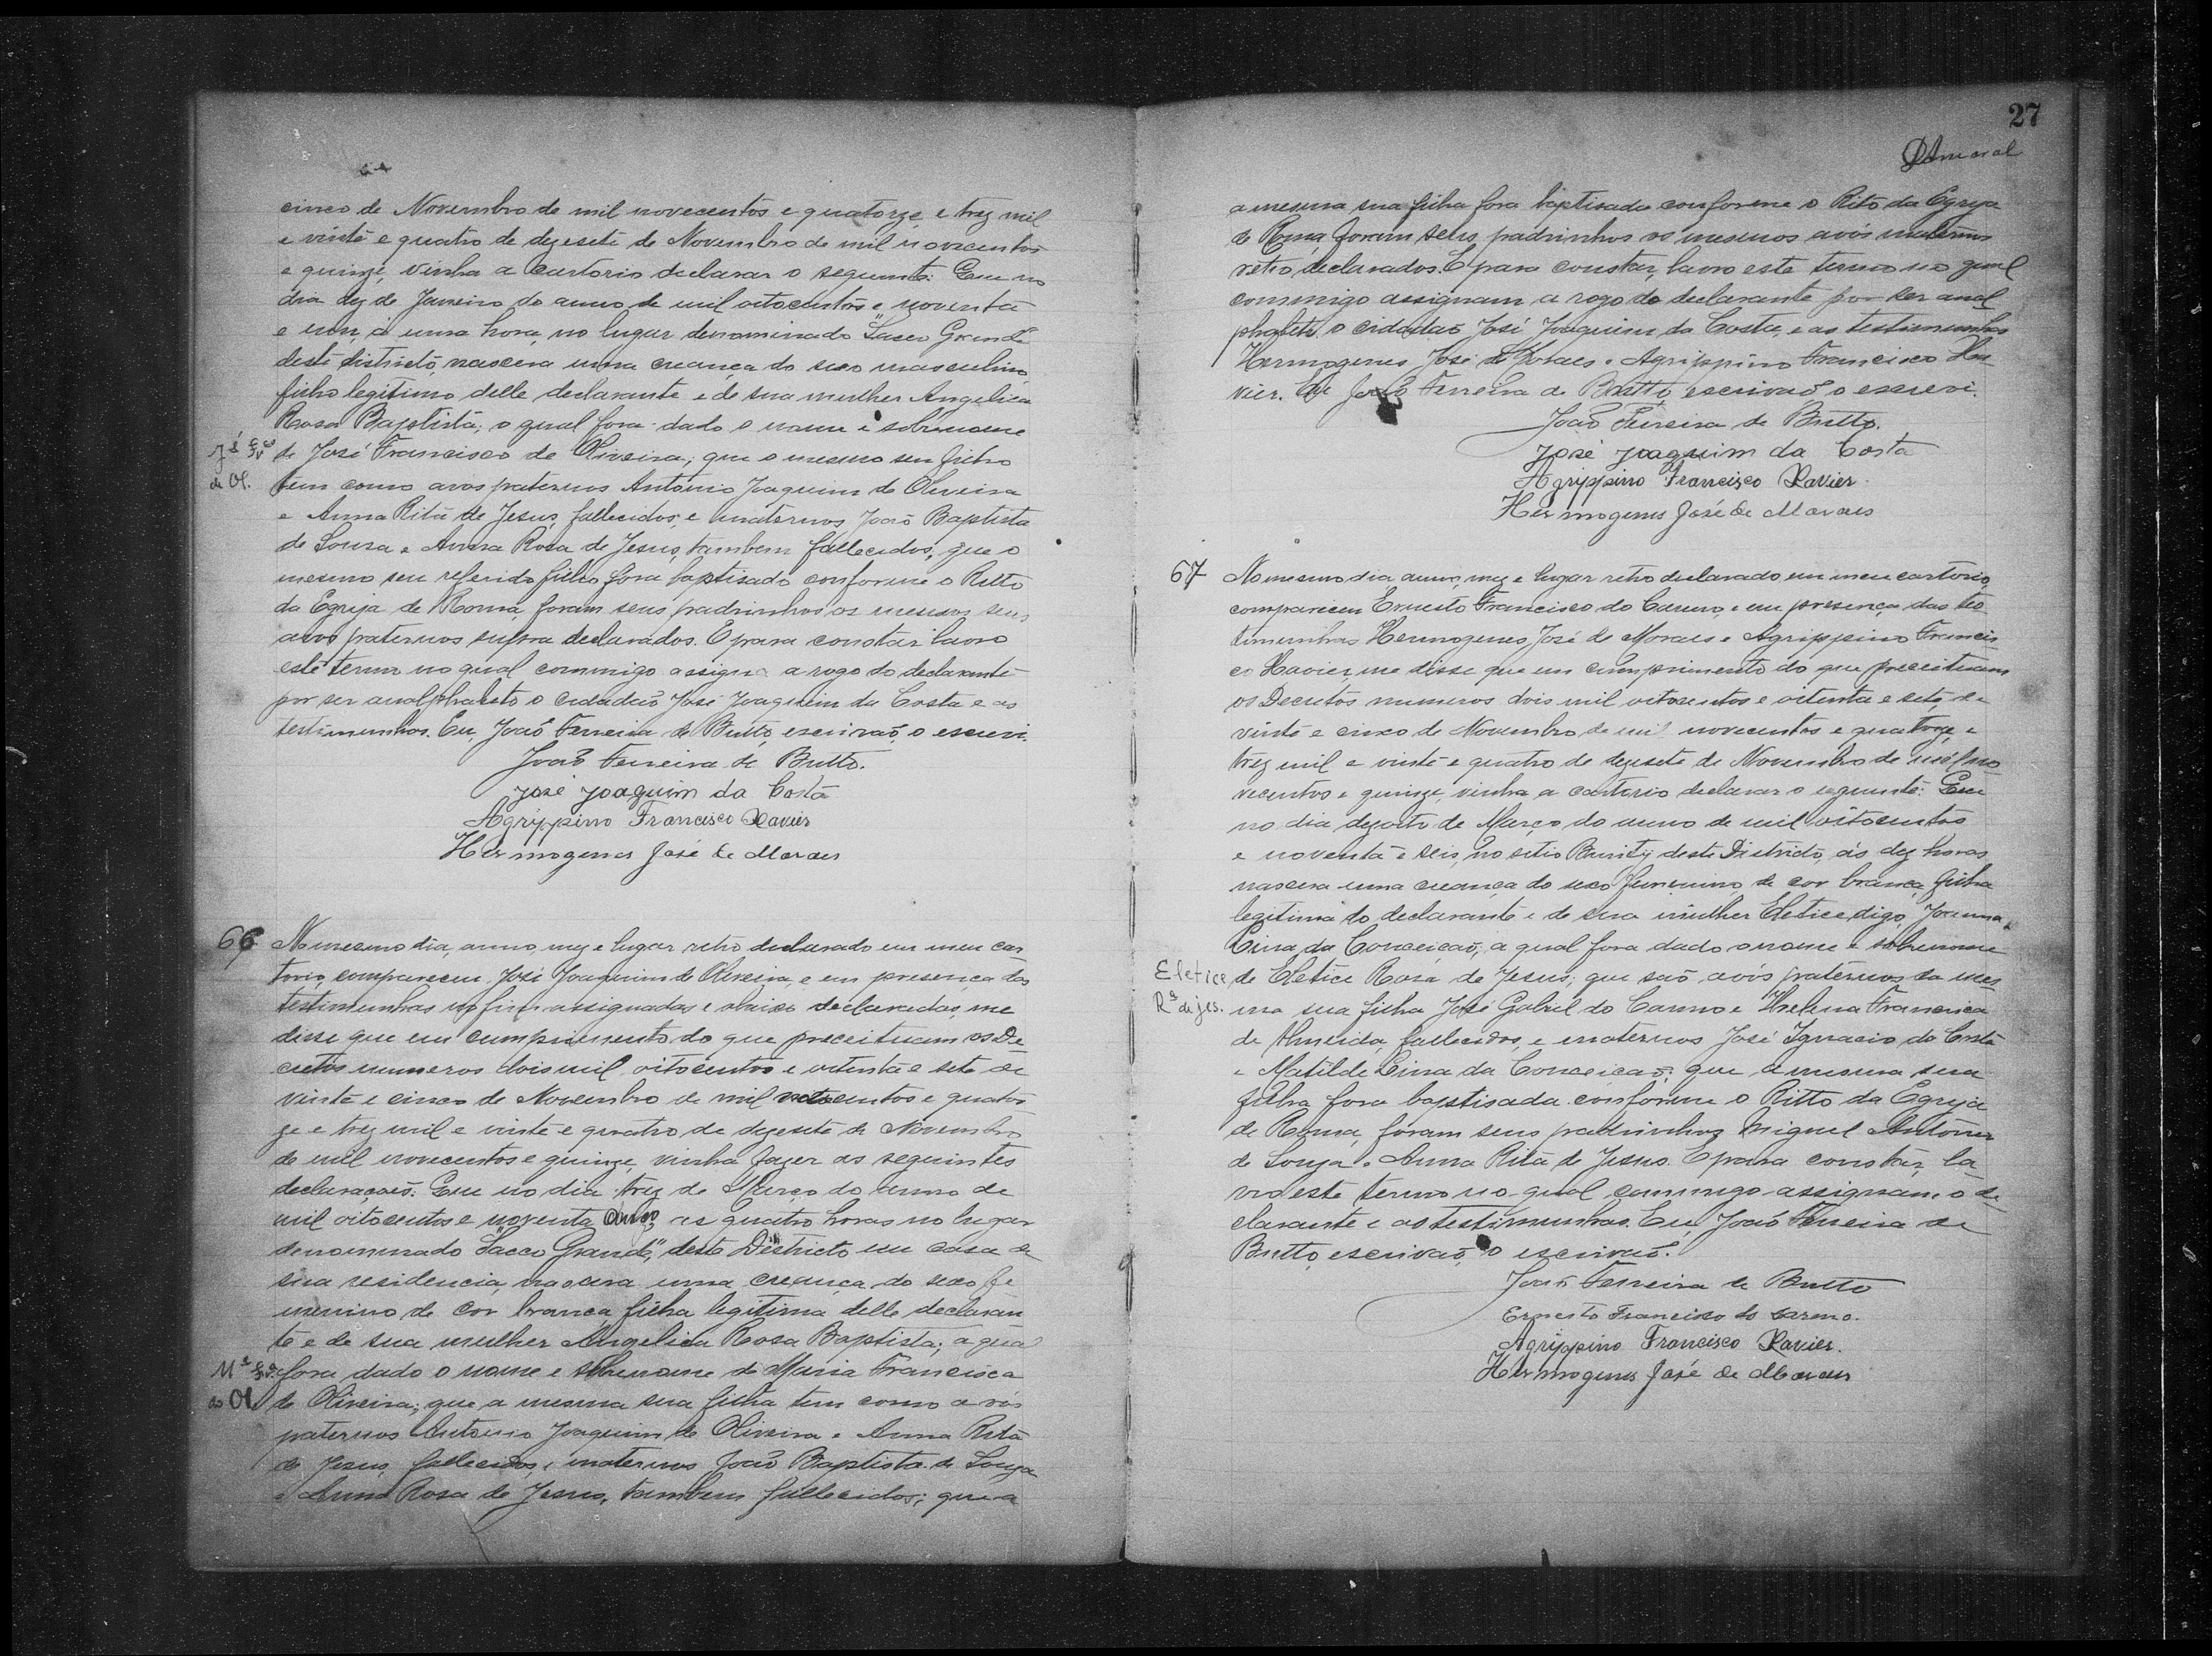 cinco de Novembro de mil novecentos e quatorze e trez mil
e vinte e quatro de dezesete de Novembro de mil novecentos
e quinze, vinha a Cartorio declarar o seguinte: Que no
dia dez de Janeiro do anno de mil oitocentos e noventa
e um, á uma hora, no lugar denominado "Sacco Grande"
deste districto, nascera uma creança do sexo masculino,
filho legitimo delle declarante e de sua mulher Angelica
Rosa Baptista; o qual fora dado o nome e sobrenome
Jé Fco de José Francisco de Oliveira; que o mesmo seu filho
de Ol. tem como avos paternos Antonio Joaquim de Oliveira
e Anna Rita de Jesus, fallecidos; e maternos João Baptista
de Souza e Anna Rosa de Jesus, tambem fallecidos; que o
mesmo seu referido filho fora baptisado conforme o Ritto
da Egreja de Roma, foram seus padrinhos os mesmos seus
avos paternos supra declarados. E para constar lavro
este termo no qual commigo assigna a rogo do declarante
por ser analphabeto o cidadão José Joaquim da Costa e as
testimunhas. Eu, João Ferreira de Britto, escrivão, o escrevi.
João Ferreira de Britto.
José Joaquim da Costa
Agrippino Francisco Xavier
Hermogenes José de Moraes
66 No mesmo dia, anno, mez e lugar retro declarado em meu car
torio, compareceu José Joaquim de Oliveira, e em presença das
testimunhas no fim assignadas e abaixo declaradas, me
disse que em cumprimento do que preceituam os De
cretos numeros dois mil oitocentos e oitenta e sete de
vinte e cinco de Novembro de mil centos e quator
ze e trez mil e vinte e quatro de dezesete de Novembro
de mil novecentos e quinze, vinha fazer as seguintes
declarações: Que no dia trez de Março do anno de
mil oitocentos e noventa as quatro horas no lugar
denominado "Sacco Grande," deste Districto em casa de
sua residencia, nascera uma creança do sexo fe
minino de cor branca, filha legitima delle declaran
te e de sua mulher Angelica Rosa Baptista; a qual
Mª Fca fora dado o nome e sobrenome de Maria Francisca
de Ol. de Oliveira; que a mesma sua filha tem como avós
paternos Antonio Joaquim de Oliveira e Anna Rita
de Jesus, fallecidos, e maternos João Baptista de Souza
e Anna Rosa de Jesus, tambem fallecidos; que a
27
DAmaral
a mesma sua filha fora baptisada conforme o Rito da Egreja
de Roma, foram seus padrinhos os mesmos avós maternos
retro declarados. E para constar, lavro este termo no qual
commigo assignam a rogo do declarante por ser anal
phabeto o cidadão José Joaquim da Costa, e as testimunhas
Hermogenes José de Moraes e Agrippino Francisco Xa
vier. Eu João Ferreira de Britto, escrivão o escrevi.
João Ferreira de Britto.
José Joaquim da Costa
Agrippino Francisco Xavier.
Hermogenes José de Moraes
67 No mesmo dia, anno, mez e lugar retro declarado em meu cartorio,
compareceu Ernesto Francisco do Carmo, e em presença das tes
timunhas Hermogenes José de Moraes e Agrippino Francis
co Xavier, me disse que em cumprimento do que preceituam
os Decretos numeros dois mil oitocentos e oitenta e sete, de
vinte e cinco de Novembro de mil novecentos e quatorze, e
trez mil e vinte e quatro de dezesete de Novembro de mil no
vecentos e quinze, vinha a cartorio declarar o seguinte: Que
no dia dezoito de Março do anno de mil oitocentos
e noventa e seis, no sitio Burity deste Districto, ás dez horas
nascera uma creança do sexo feminino, de cor branca, filha
legitima do declarante e de sua mulher Eletice, digo, Joanna
Lina da Conceição, a qual fora dado o nome e sobrenome
Eletice de Eletice Rosa de Jesus; que são avós paternos da mes
Rª de jes. ma sua filha José Gabriel do Carmo e Helena Francisca
de Almeida, fallecidos, e maternos José Ignacio da Costa
e Matilde Lina da Conceição; que a mesma sua
filha fora baptisada conforme o Ritto da Egreja
de Roma, foram seus padrinhos Miguel Antonio
de Souza e Anna Rita de Jesus. E para constar, la
vro este termo no qual commigo assignam o de
clarante e as testimunhas. Eu, João Ferreira de
Britto, escrivão, o escrivão.
João Ferreira de Britto
Ernesto Francisco do Carmo.
Agrippino Francisco Xavier.
Hermogenes José de Moraes